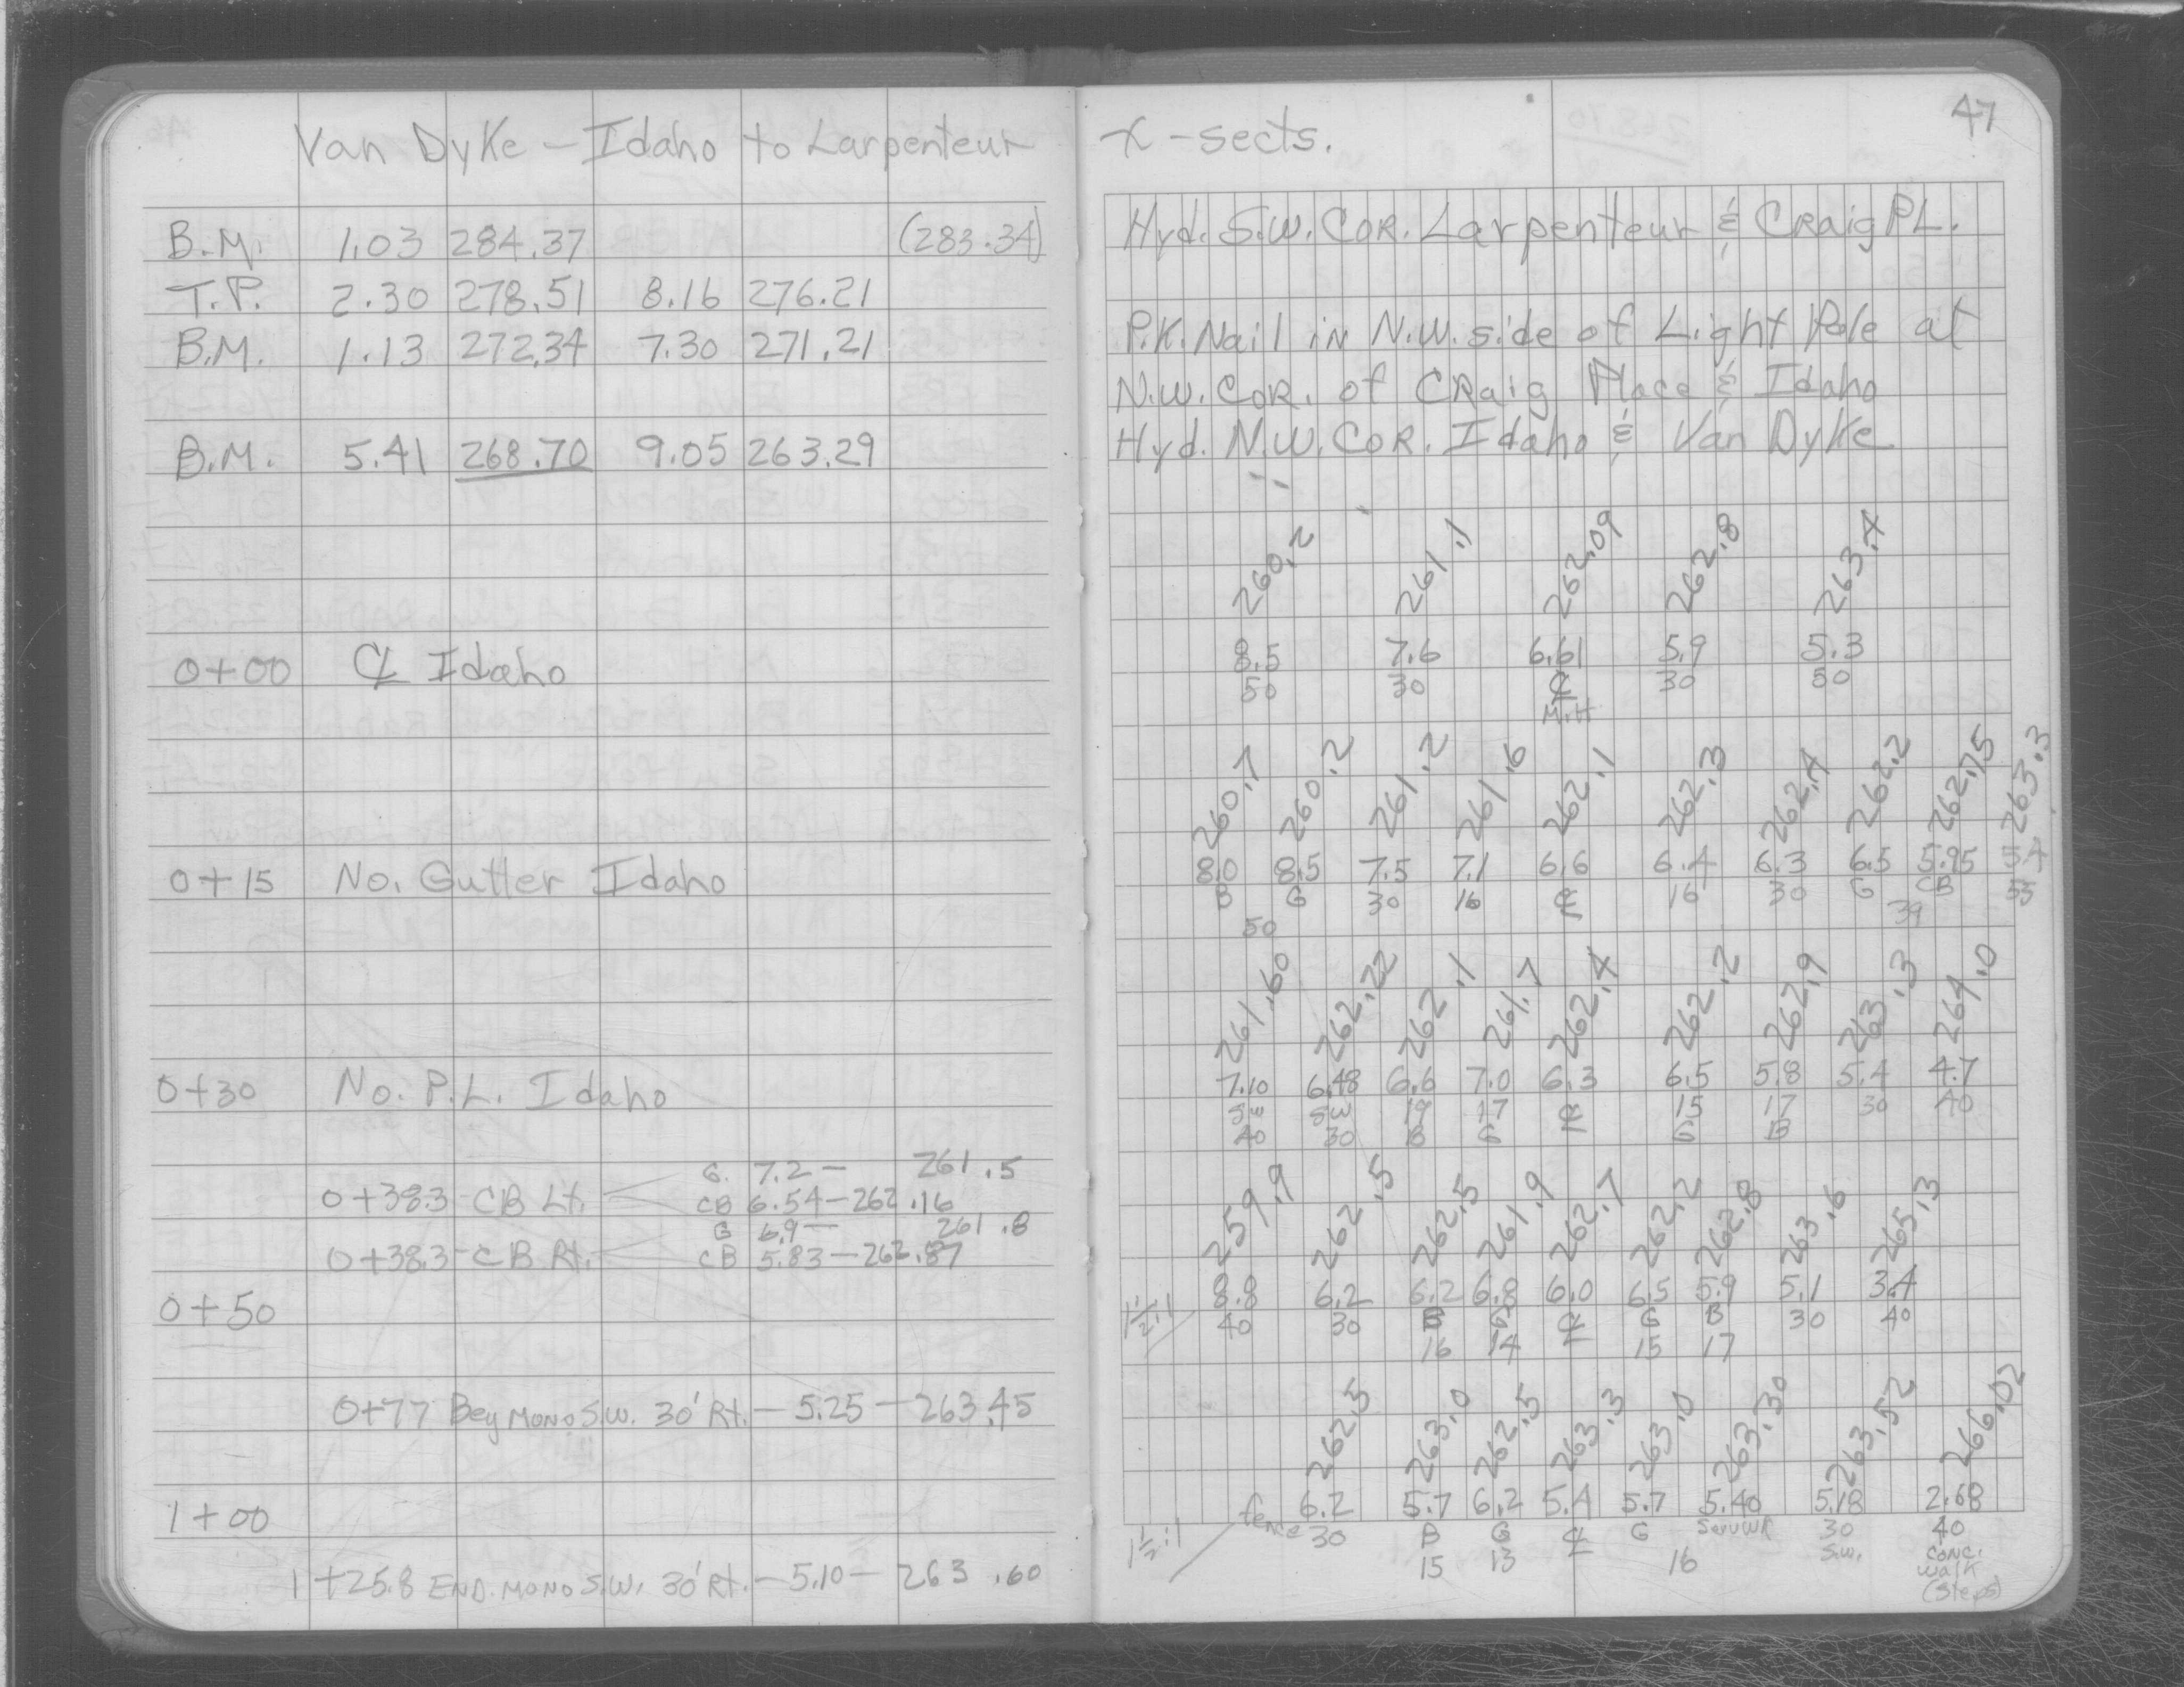 Van Dyke - Idaho to Larpenteur
B.M. 1.03 284.37 (283.34)
T.P. 2.30 278.51 8.16 276.21
B.M. 1.13 272.34 7.30 271.21
B.M. 5.41 268.70 9.05 263.29
0+00 ℄ Idaho
0+15 No. Gutter Idaho
0+30 No. P.L. Idaho
G. 7.2 - 261.5
0+38.3 CB Lt. CB 6.54 - 262.16
G 6.9 - 261.8
0+38.3 CB Rt. CB 5.83 - 262.87
0+50
0+77 Beg MONO S.W. 30' Rt. - 5.25 - 263.45
1+00
1+25.8 END. MONO S.W. 30' Rt. - 5.10 - 263.60
47
X-sects.
Hyd. S.W. COR. Larpenteur & CRaig PL.
P.K. Nail in N.W. side of Light Pole at
N.W. COR. of CRaig Place & Idaho
Hyd. N.W. COR. Idaho & Van Dyke
260.2 261.1 262.09 262.8 263.4
8.5 7.6 6.61 5.9 5.3
50 30 ℄ 30 50
M.H
260.7 260.2 261.2 261.6 262.1 262.3 262.4 262.2 262.75 263.3
8.0 8.5 7.5 7.1 6.6 6.4 6.3 6.5 5.95 5.4
B G 30 16 ℄ 16 30 G CB 55
50 39
261.60 262.22 262.1 261.7 262.4 262.2 262.9 263.3 264.0
7.10 6.48 6.6 7.0 6.3 6.5 5.8 5.4 4.7
SW SW 19 17 ℄ 15 17 30 40
40 30 B G G B
259.9 262.5 262.5 261.9 262.7 262.2 262.8 263.6 265.3
1½:1 8.8 6.2 6.2 6.8 6.0 6.5 5.9 5.1 3.4
40 30 B G ℄ G B 30 40
16 14 15 17
262.5 263.0 262.5 263.3 263.0 263.30 263.52 266.02
6.2 5.7 6.2 5.4 5.7 5.40 5.18 2.68
1½:1 fence 30 B G ℄ G 30 40
15 13 16 S.W. CONC.
walk
(Steps)